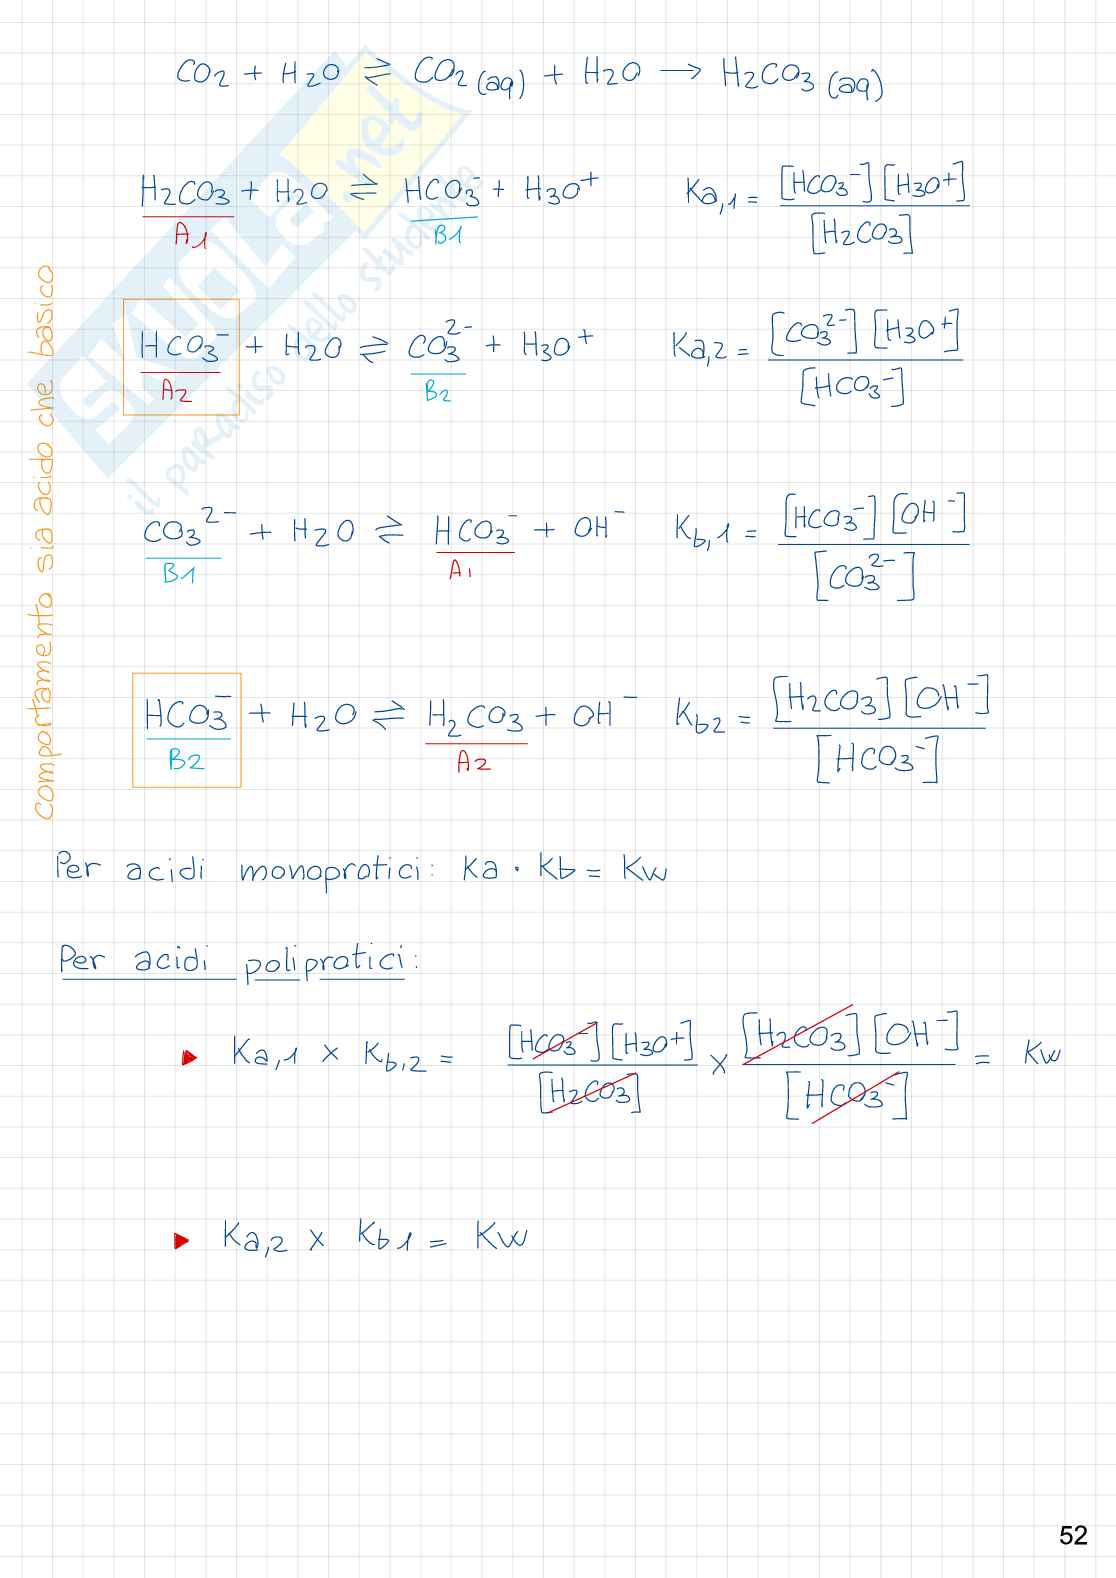 CO2 + H2O ⇌ CO2 (aq) + H2O → H2CO3 (aq)
H2CO3 + H2O ⇌ HCO3⁻ + H3O⁺ Ka,1 = [HCO3⁻] [H3O⁺]
[H2CO3]
A1 B1
HCO3⁻ + H2O ⇌ CO3²⁻ + H3O⁺ Ka,2 = [CO3²⁻] [H3O⁺]
[HCO3⁻]
A2 B2
CO3²⁻ + H2O ⇌ HCO3⁻ + OH⁻ Kb,1 = [HCO3⁻] [OH⁻]
[CO3²⁻]
B1 A1
HCO3⁻ + H2O ⇌ H2CO3 + OH⁻ Kb2 = [H2CO3] [OH⁻]
[HCO3⁻]
B2 A2
comportamento sia acido che basico
Per acidi monoprotici: Ka · Kb = Kw
Per acidi poliprotici:
▶ Ka,1 × Kb,2 = [HCO3⁻] [H3O⁺] × [H2CO3] [OH⁻] = Kw
[H2CO3] [HCO3⁻]
▶ Ka,2 × Kb1 = Kw
52
SKUOLa.net
il paradiso dello studente